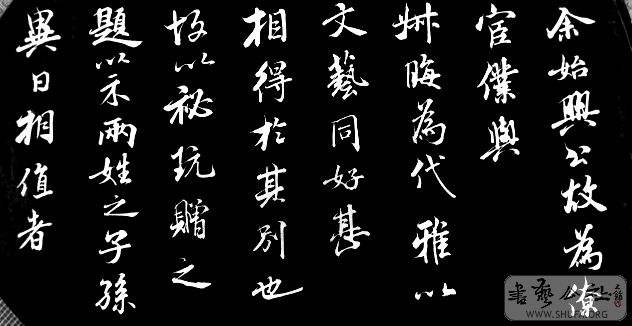 余始興公故為僚
宦僕與
叔晦為代雅以
文藝同好甚
相得於其別也
故以祕玩贈之
題以示兩姓之子孫
異日相值者
書藝公社
WWW.SHUFA.ORG